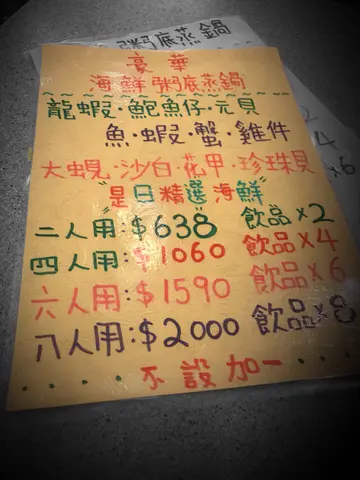 粥底蒸鍋
豪華
海鮮粥底蒸鍋
龍蝦·鮑魚仔·元貝
魚·蝦·蟹·雞件
大蜆·沙白·花甲·珍珠貝
"是日精選海鮮"
二人用:$638 飲品×2
四人用:$1060 飲品×4
六人用:$1590 飲品×6
八人用:$2000 飲品×8
不設加一